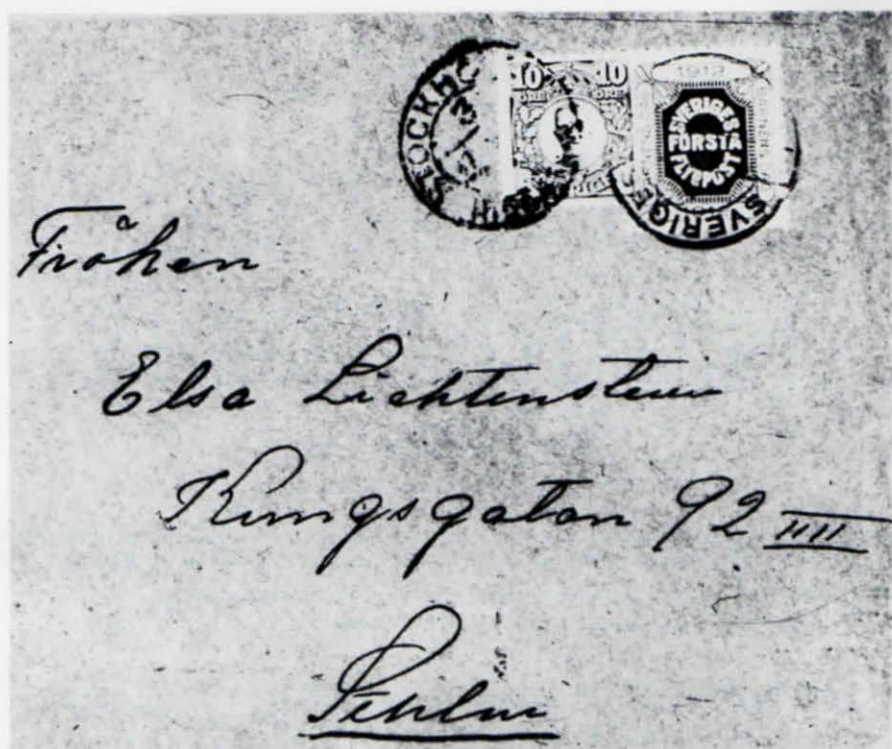 STOCKHOLM
10 10
ÖRE ÖRE
1912
SVERIGES
FÖRSTA
FLYGPOST
SVERIGES
Fröken
Elsa Lichtenstein
Kungsgatan 92 IIII
Sthlm